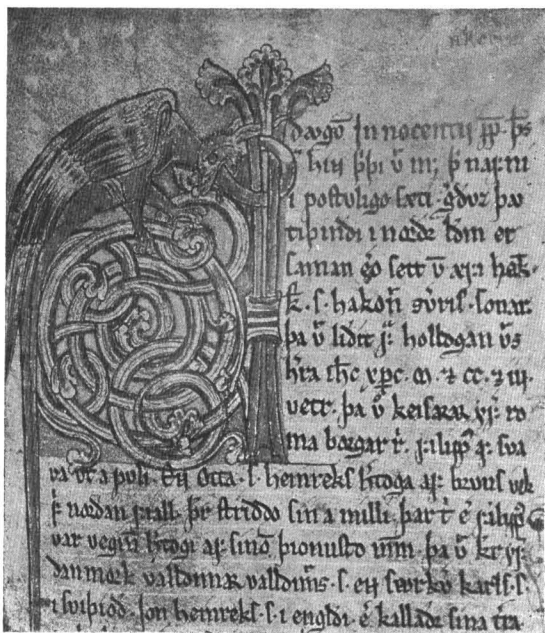 A dogō Innocentii pp̄. þs
v̄ hiñ þði v̄ m; þ̄ nafni
i postoligo sæti gdvz þav
tiþindi i nordr lðm er
saman ero sett v̄ æfi hak.
k. s. hakoñ sv̄ris. sonar
þa v̄ lidit fꝛ̄ holldgan v̄s
hr̄a ih̄c xp̄c. m. ⁊ cc. ⁊ iij.
vetr. þa v̄ keisarar yf̄ ro
ma borgar r̄. filipp̄ af sva
va ok a puli. En Otta. s. heinreks h̄toga af brvns vik
f̄ nordan fiall. þr̄ striddo sin a milli þar t̄ e̅ filipp̄
var vegiñ h̄togi af sinō þionosto m̄m. þa v̄ kr̄ yf̄
danmork valldimar valldim̄s. s. eñ sorkv̄ karls. s.
i sviþiod. Jon heinreks. s. i engl̄di. e̅ kalladr sina tra